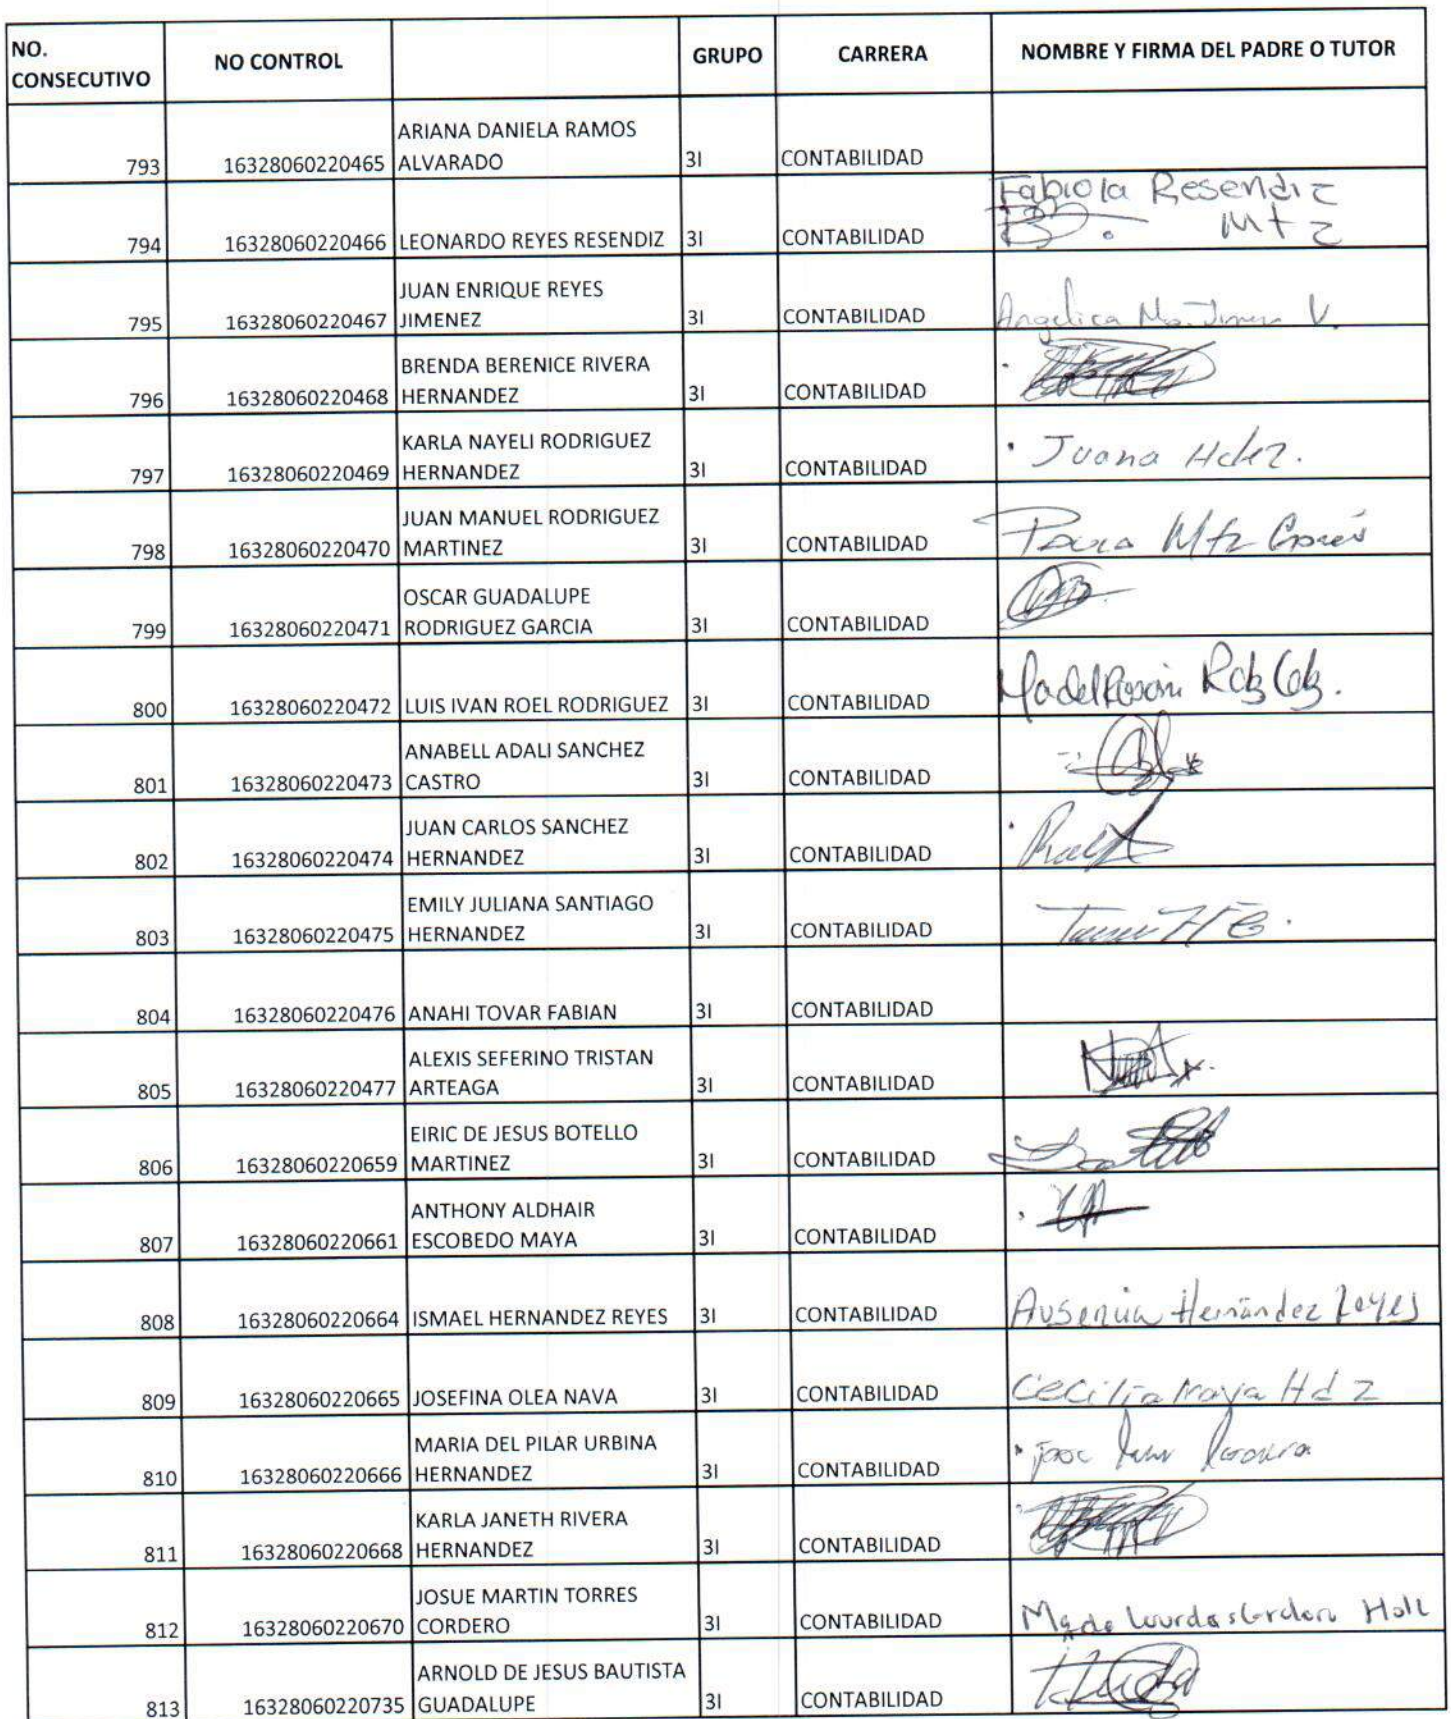 NO. CONSECUTIVO NO CONTROL GRUPO CARRERA NOMBRE Y FIRMA DEL PADRE O TUTOR
793 16328060220465 ARIANA DANIELA RAMOS ALVARADO 3I CONTABILIDAD
794 16328060220466 LEONARDO REYES RESENDIZ 3I CONTABILIDAD Fabiola Resendiz Mtz
795 16328060220467 JUAN ENRIQUE REYES JIMENEZ 3I CONTABILIDAD Angelica Ma. V.
796 16328060220468 BRENDA BERENICE RIVERA HERNANDEZ 3I CONTABILIDAD
797 16328060220469 KARLA NAYELI RODRIGUEZ HERNANDEZ 3I CONTABILIDAD Juana Hdez.
798 16328060220470 JUAN MANUEL RODRIGUEZ MARTINEZ 3I CONTABILIDAD Mtz
799 16328060220471 OSCAR GUADALUPE RODRIGUEZ GARCIA 3I CONTABILIDAD
800 16328060220472 LUIS IVAN ROEL RODRIGUEZ 3I CONTABILIDAD
801 16328060220473 ANABELL ADALI SANCHEZ CASTRO 3I CONTABILIDAD
802 16328060220474 JUAN CARLOS SANCHEZ HERNANDEZ 3I CONTABILIDAD
803 16328060220475 EMILY JULIANA SANTIAGO HERNANDEZ 3I CONTABILIDAD
804 16328060220476 ANAHI TOVAR FABIAN 3I CONTABILIDAD
805 16328060220477 ALEXIS SEFERINO TRISTAN ARTEAGA 3I CONTABILIDAD
806 16328060220659 EIRIC DE JESUS BOTELLO MARTINEZ 3I CONTABILIDAD
807 16328060220661 ANTHONY ALDHAIR ESCOBEDO MAYA 3I CONTABILIDAD
808 16328060220664 ISMAEL HERNANDEZ REYES 3I CONTABILIDAD Hernández Reyes
809 16328060220665 JOSEFINA OLEA NAVA 3I CONTABILIDAD Cecilia Hdz
810 16328060220666 MARIA DEL PILAR URBINA HERNANDEZ 3I CONTABILIDAD
811 16328060220668 KARLA JANETH RIVERA HERNANDEZ 3I CONTABILIDAD
812 16328060220670 JOSUE MARTIN TORRES CORDERO 3I CONTABILIDAD
813 16328060220735 ARNOLD DE JESUS BAUTISTA GUADALUPE 3I CONTABILIDAD